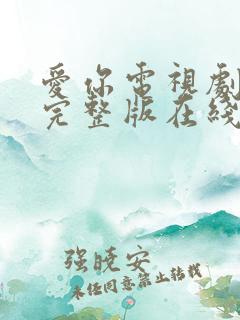 愛你電視劇
完整版在綫
强晓安
未经同意禁止转载